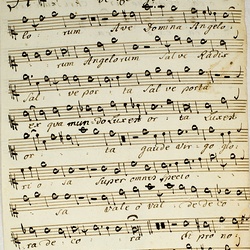 lo rum Ave Domina Angelo
rum Angelorum Salve Radix
Sal ve por ta Salve porta
ex qua mundo lux est or ta Lux est
or ta gaude Virgo glo
ri o sa Super omnes specio
sa vale o val de de co
ra de co ra et pro no